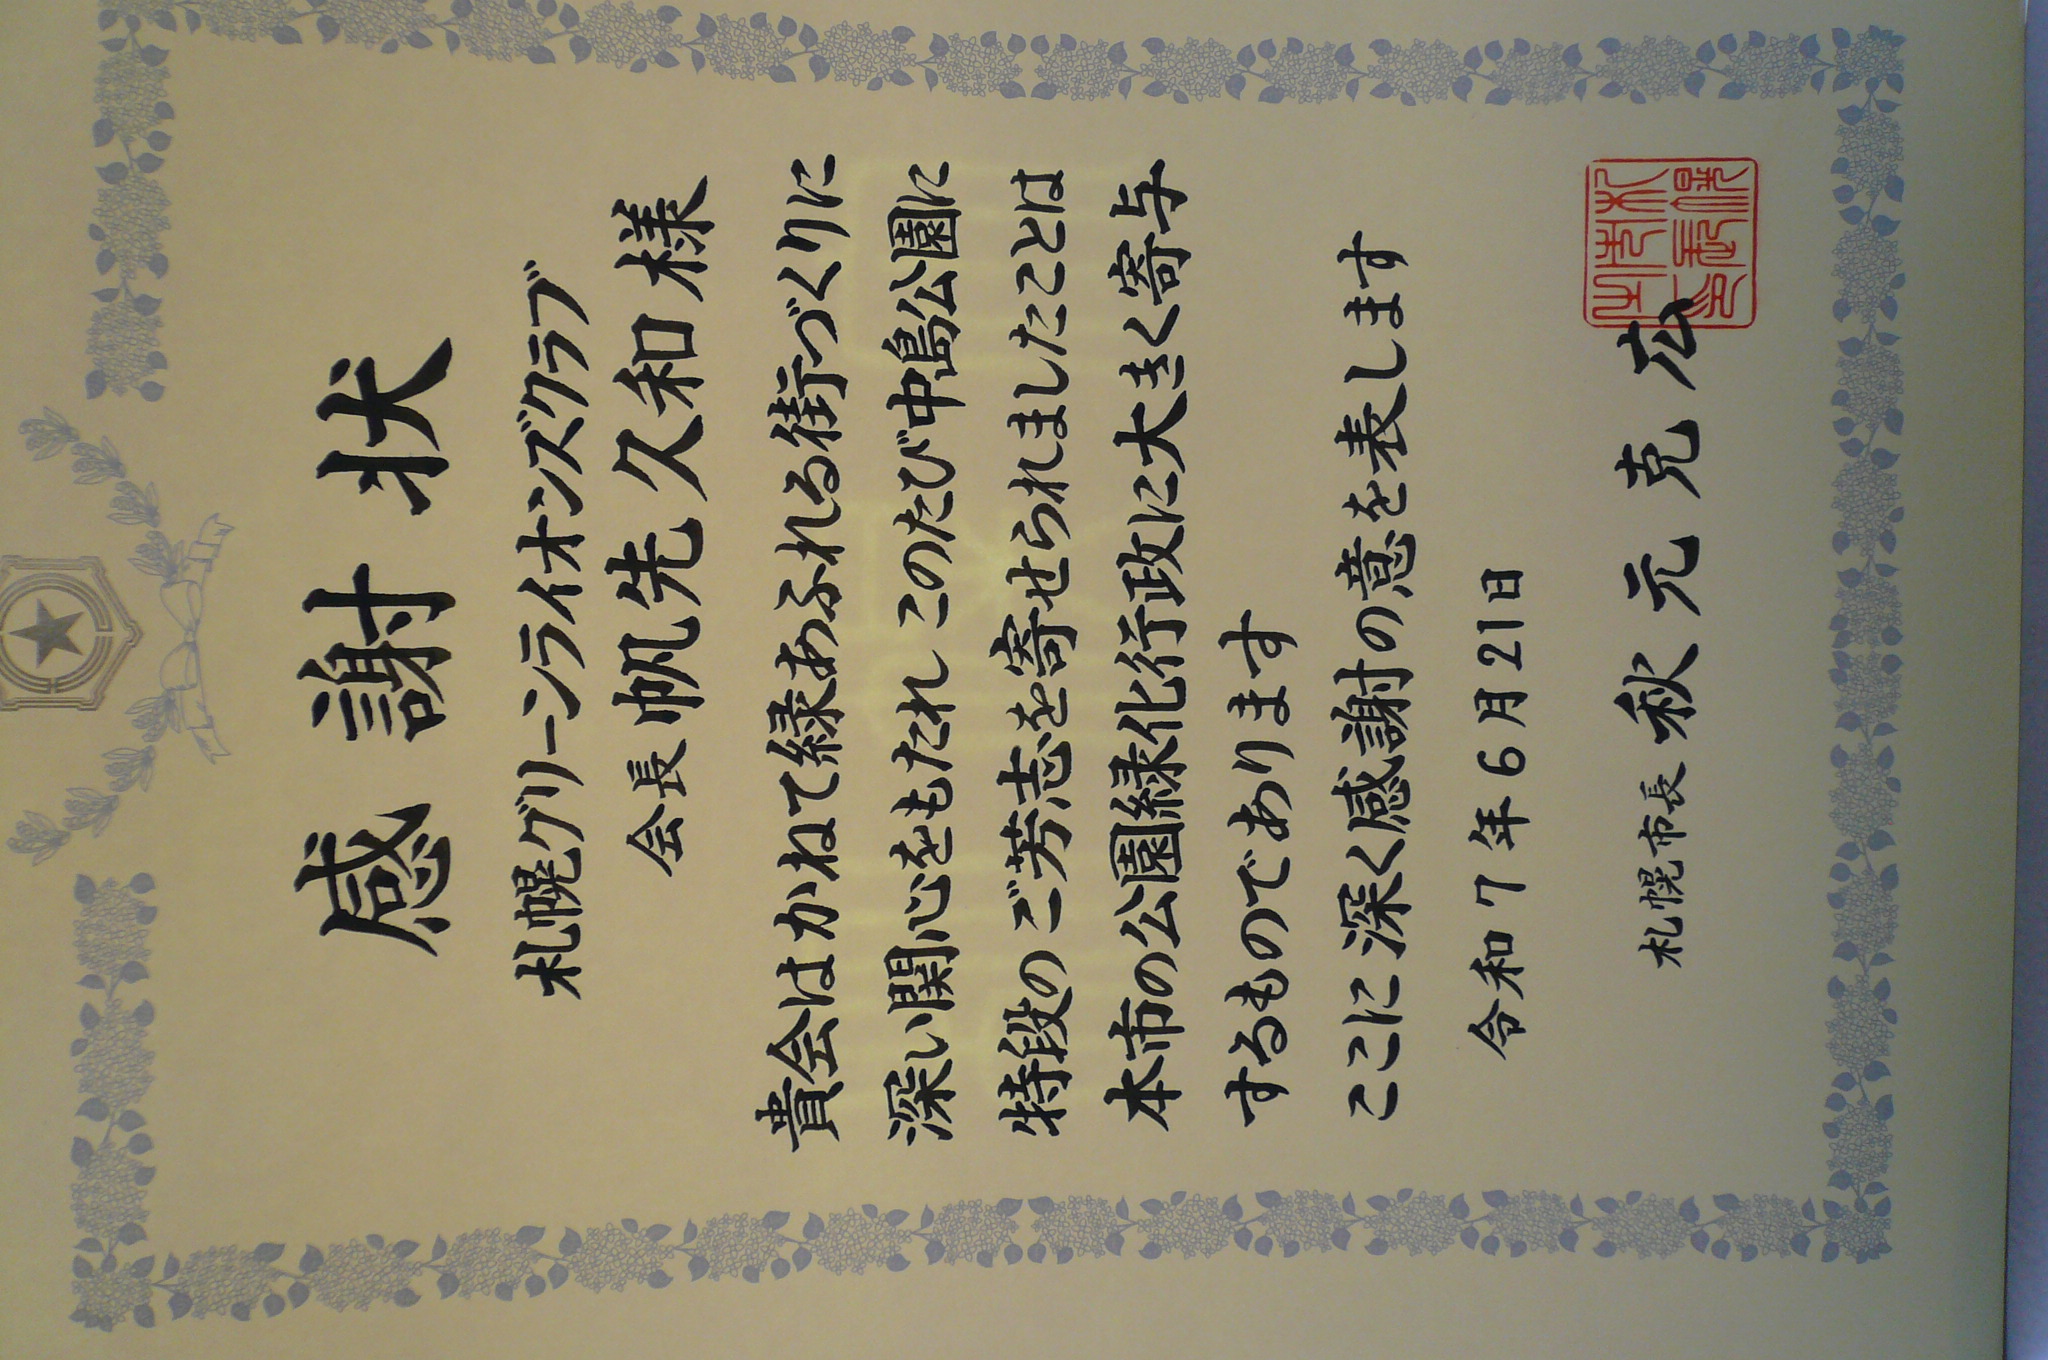 感謝状
札幌グリーンライオンズクラブ
会長 帆先久和様
貴会はかねて緑あふれる街づくりに
深い関心をもたれ このたび中島公園に
特段のご芳志を寄せられましたことは
本市の公園緑化行政に大きく寄与
するものであります
ここに深く感謝の意を表します
令和7年6月21日
札幌市長 秋元克広